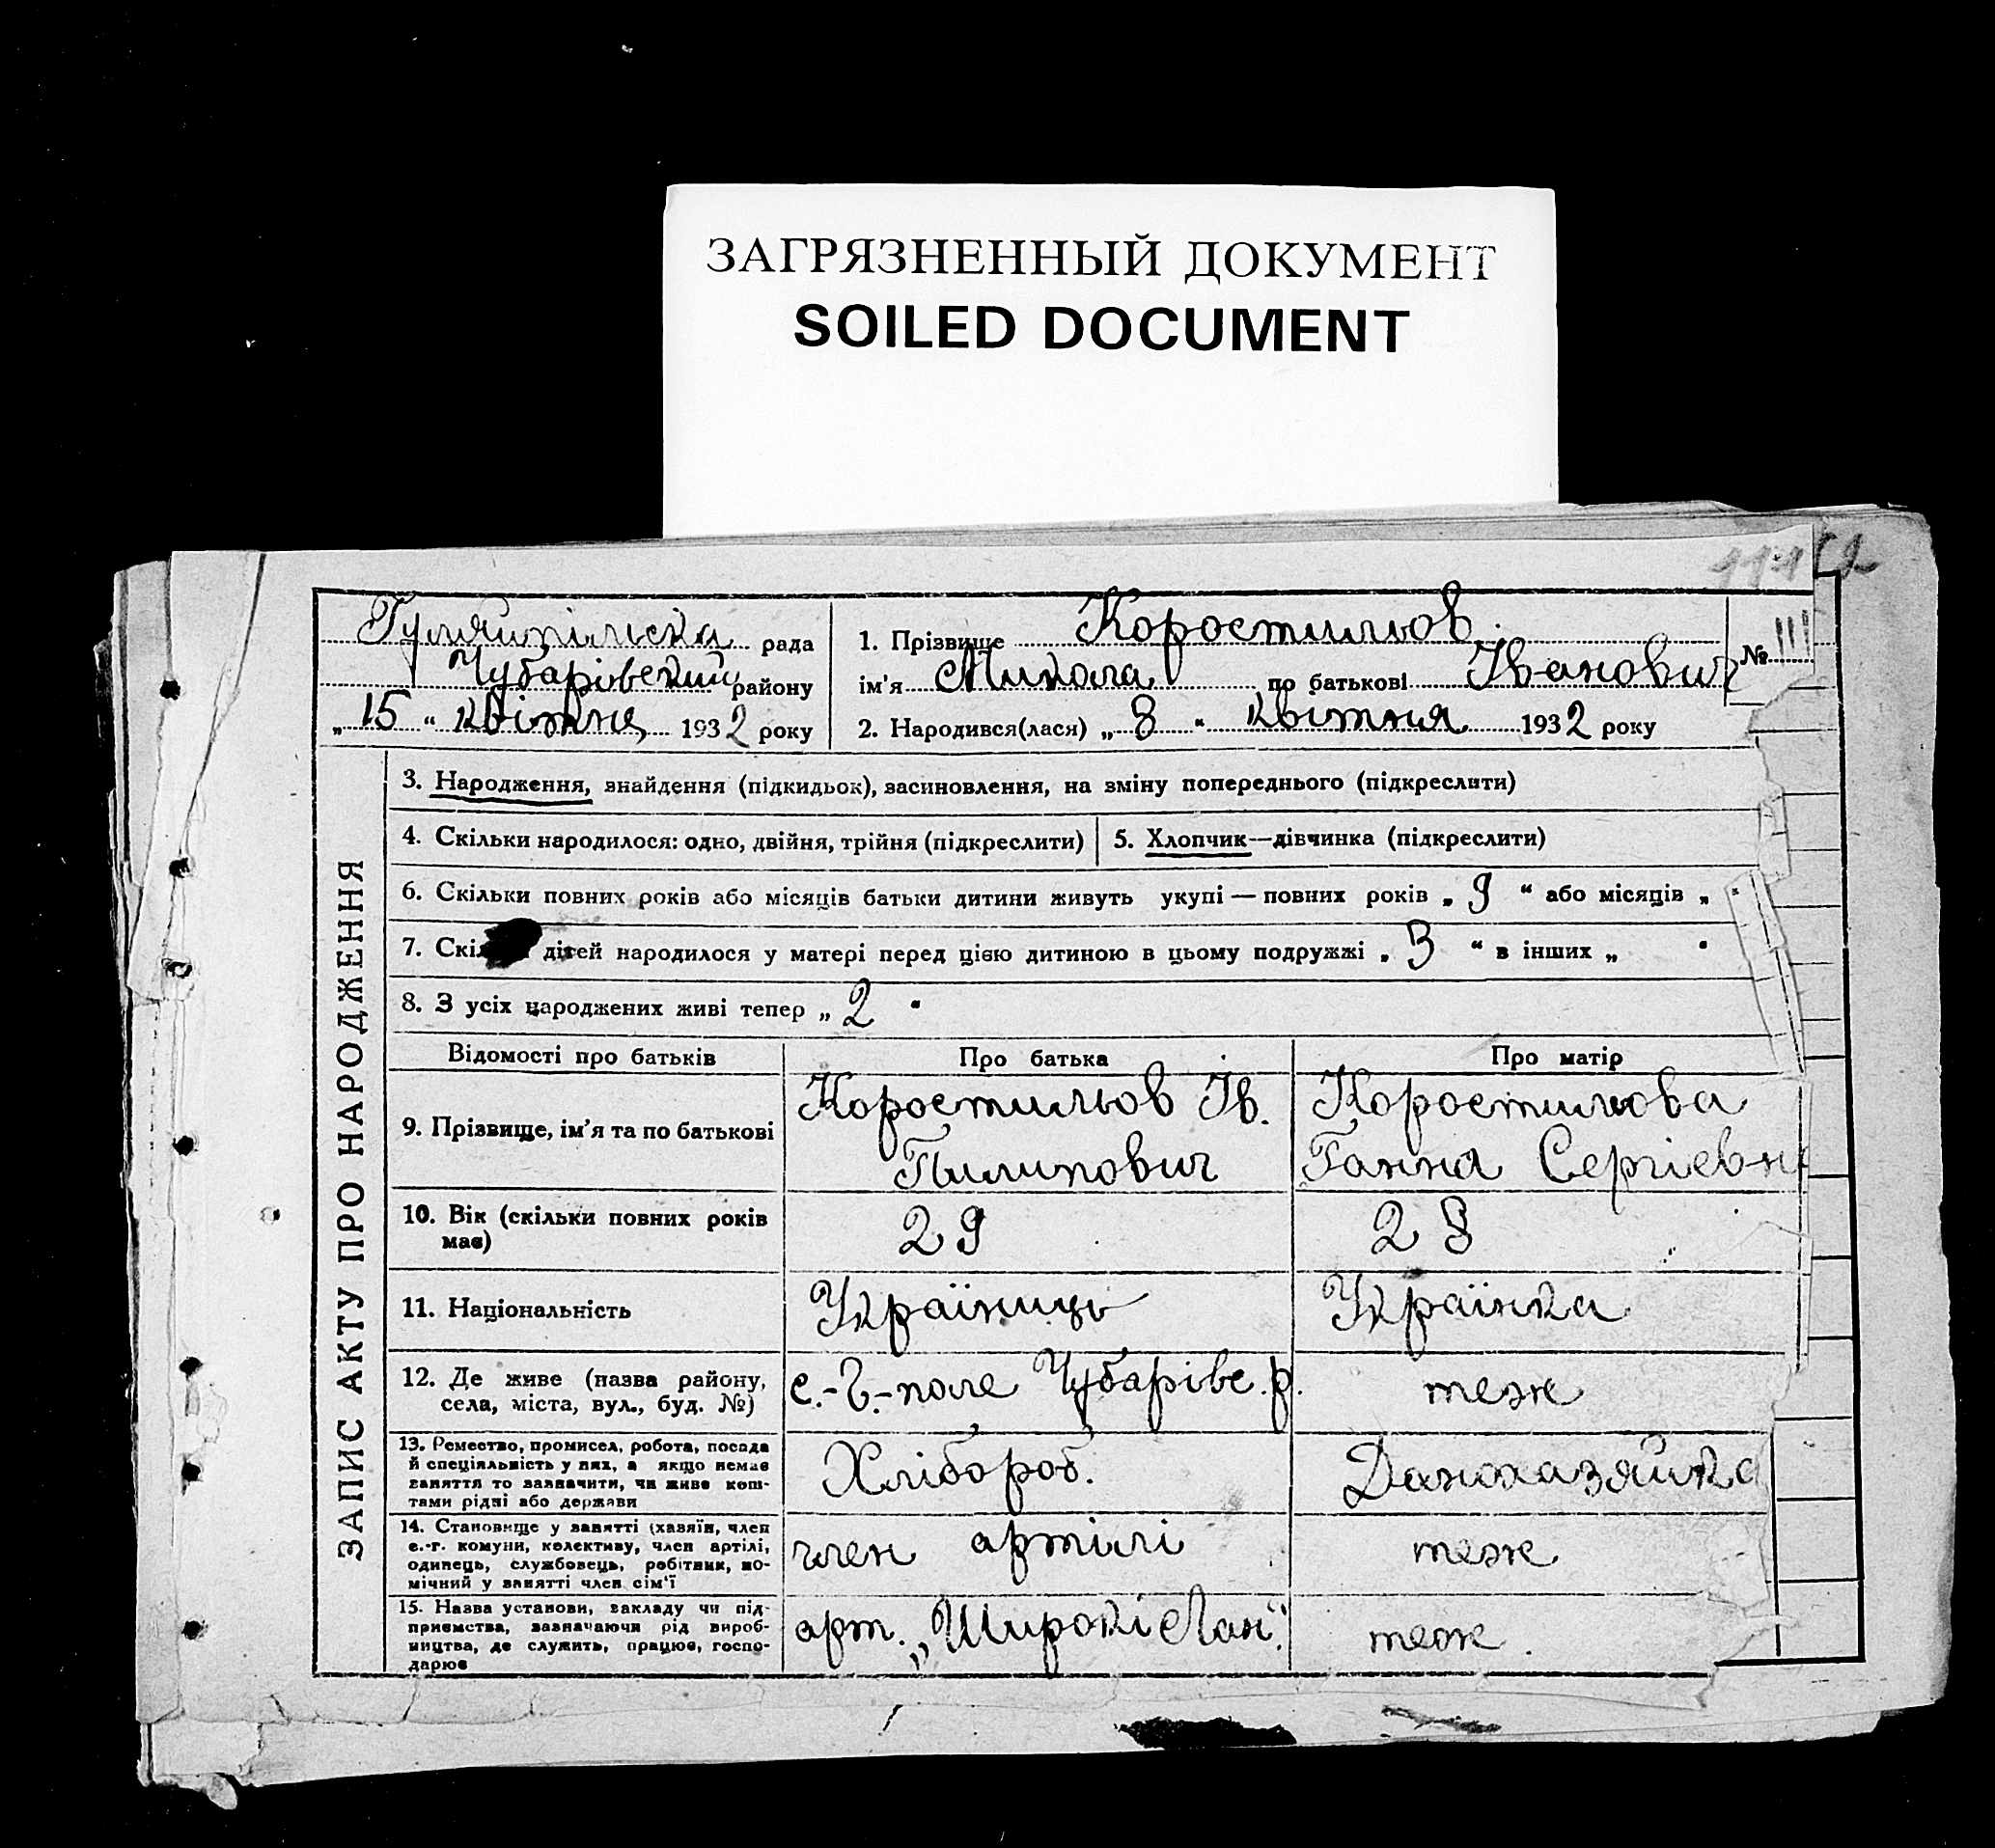 ЗАГРЯЗНЕННЫЙ ДОКУМЕНТ
SOILED DOCUMENT
Гуляйпільська рада
Чубарівський району
„15“ квітня 1932 року
1. Прізвище Коростильов
ім'я Микола по батькові Іванович
№ 111
2. Народився(лася) „8“ квітня 1932 року
ЗАПИС АКТУ ПРО НАРОДЖЕННЯ
3. Народження, знайдення (підкидьок), засиновлення, на зміну попереднього (підкреслити)
4. Скільки народилося: одно, двійня, трійня (підкреслити)
5. Хлопчик—дівчинка (підкреслити)
6. Скільки повних років або місяців батьки дитини живуть укупі — повних років „9“ або місяців „
7. Скі дітей народилося у матері перед цією дитиною в цьому подружжі „3“ в інших „
8. З усіх народжених живі тепер „2“
Відомості про батьків
Про батька
Про матір
9. Прізвище, ім'я та по батькові
Коростильов Ів.
Пилипович
Коростильова
Ганна Сергіевн
10. Вік (скільки повних років
має)
29
28
11. Національність
Україниць
Українка
12. Де живе (назва району,
села, міста, вул., буд. №)
с.-Г.-поле Чубарівс. р.
теж
13. Ремество, промисел, робота, посада
й спеціяльність у них, а якщо немає
заняття то зазначити, чи живе кош-
тами рідні або держави
Хлібороб.
Домохазяйка
14. Становище у занятті (хазяїн, член
с.-г. комуни, колективу, член артілі,
одинець, службовець, робітник, по-
мічний у занятті член сім'ї
член артілі
теж
15. Назва установи, закладу чи під-
приємства, зазначаючи рід вироб-
ництва, де служить, працює, госпо-
дарює
арт. „Широкі Лан“.
теж.